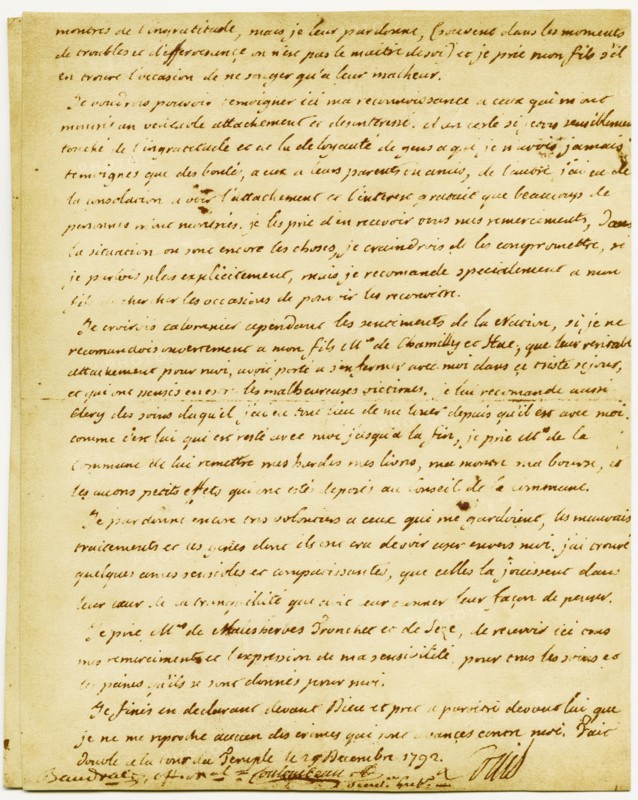 montrés de l'ingratitude, mais je leur pardonne, (souvent dans les moments
de troubles et d'effervescence on n'est pas le maitre de soi) et je prie mon fils s'il
en trouve l'occasion de ne songer qu'a leur malheur.
Je voudrois pouvoir temoigner ici ma reconnoissance a ceux qui m'ont
montrés un veritable attachement et desinteressé. d'un coté si j'etois sensiblement
touché de l'ingratitude et de la deloyauté de gens a qui je n'avois jamais
temoignés que des bontés, a eux a leurs parents ou amis, de l'autre j'ai eu de
la consolation a voir l'attachement et l'interet gratuit que beaucoup de
personnes m'ont montrés. je les prie d'en recevoir tous mes remerciments, dans
la situation ou sont encore les choses, je craindrois de les compromettre, si
je parlois plus explicitement, mais je recomande specialement a mon
fils de chercher les occasions de pouvoir les reconoitre.
Je croirois calomnier cependant les sentiments de la Nation, si je ne
recomandois ouvertement a mon fils Mrs de Chamilly et Hue, que leur veritable
attachement pour moi, avoit porté a s'enfermer avec moi dans ce triste sejour,
et qui ont pensés en etre les malheureuses victimes. je lui recomande aussi
Clery des soins duquel j'ai eu tout lieu de me louer depuis qu'il est avec moi.
comme c'est lui qui est resté avec moi jusqu'a la fin, je prie Mrs de la
Commune de lui remettre mes hardes mes livres, ma montre ma bourse, et
les autres petits effets qui ont été deposés au Conseil de la commune.
Je pardonne encore tres volontiers a ceux qui me gardoient, les mauvais
traitements et les gesnes dont ils ont cru devoir user envers moi. j'ai trouvé
quelques ames sensibles et compatissantes, que celles la jouissent dans
leur cœur de la tranquilité que doit leur donner leur façon de penser.
Je prie Mrs de Malesherbes Tronchet et de Seze, de recevoir ici tous
mes remerciments et l'expression de ma sensibilité, pour tous les soins et
les peines qu'ils se sont donnés pour moi.
Je finis en declarant devant Dieu et pret a paroitre devant lui que
je ne me reproche aucun des crimes qui sont avancés contre moi. Fait
double a la tour du Temple le 25 Decembre 1792.
Baudrais, Louis